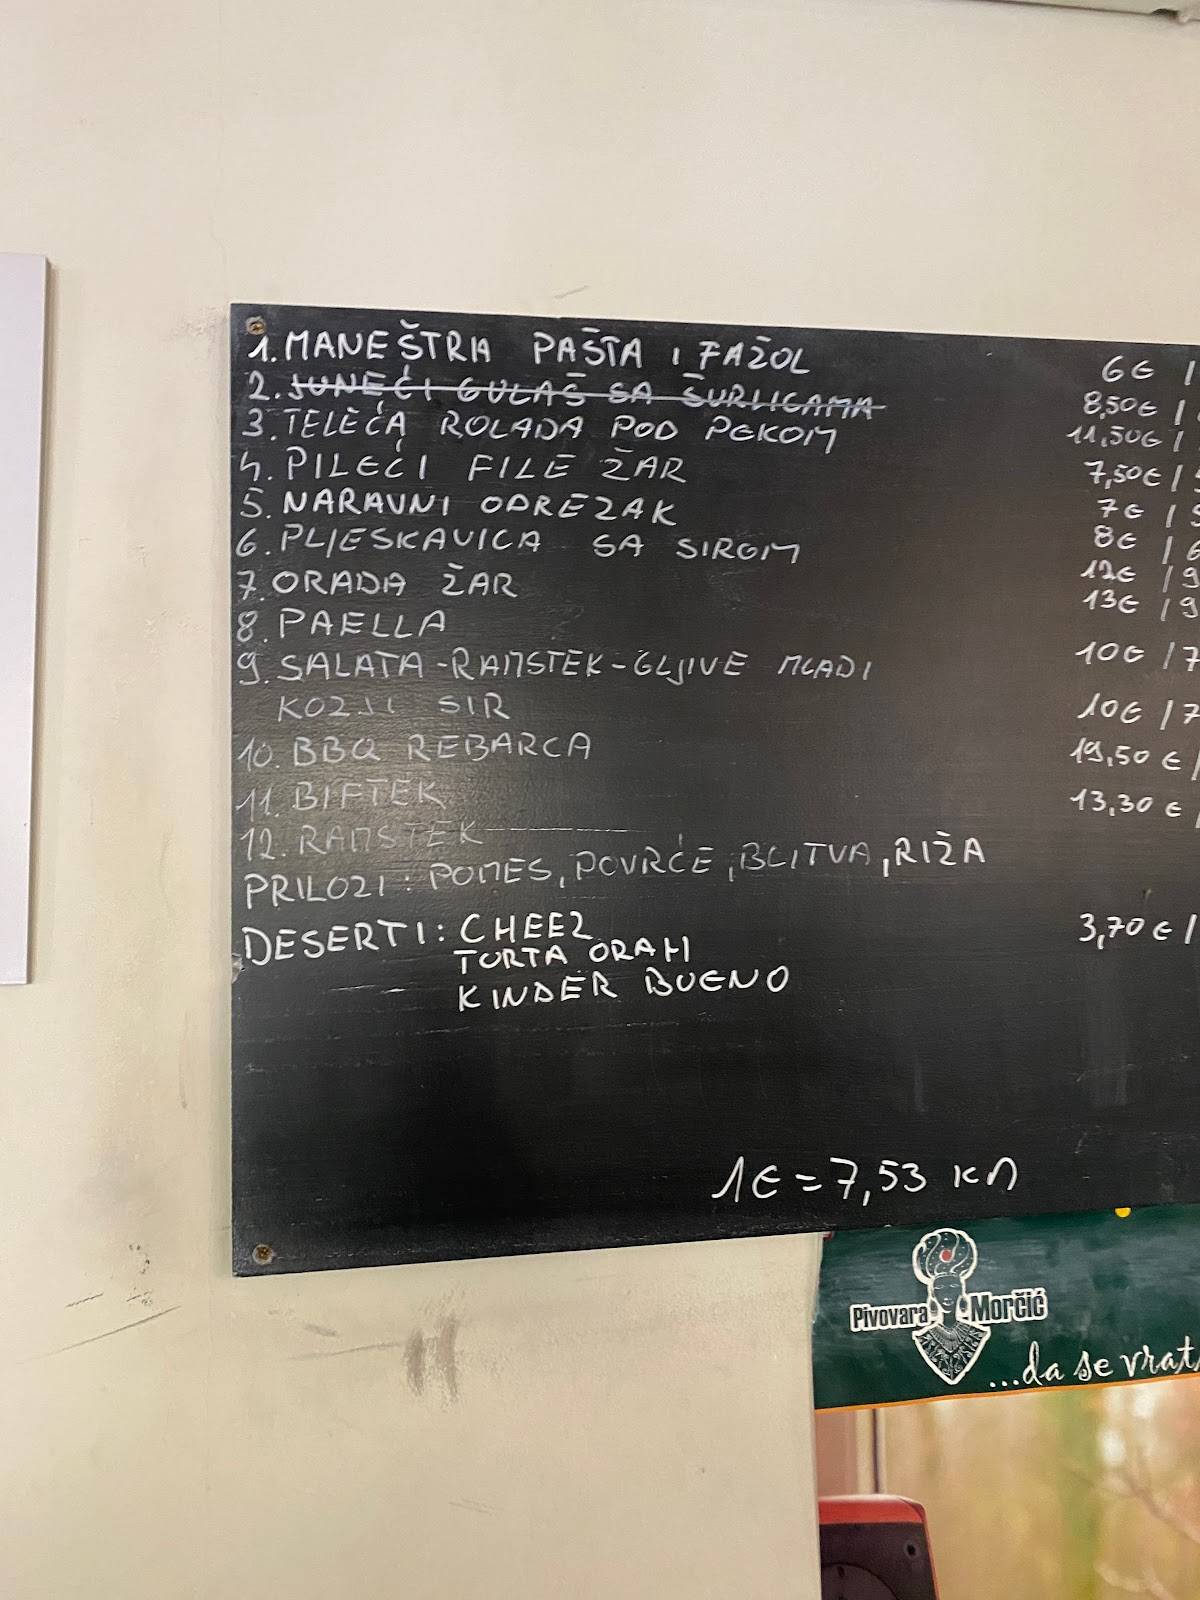 1. MANEŠTRA PAŠTA I FAŽOL 6€ /
2. JUNEĆI GULAŠ SA ŠURLICAMA 8,50€ /
3. TELEĆA ROLADA POD PEKOM 11,50€ /
4. PILEĆI FILE ŽAR 7,50€ / 5
5. NARAVNI ODREZAK 7€ / 5
6. PLJESKAVICA SA SIROM 8€ / 6
7. ORADA ŽAR 12€ / 9
8. PAELLA 13€ / 9
9. SALATA-RAMSTEK-GLJIVE MLADI 10€ / 7
KOZJI SIR
10. BBQ REBARCA 10€ / 7
11. BIFTEK 19,50 € /
12. RAMSTEK 13,30 € /
PRILOZI: POMES, POVRĆE, BLITVA, RIŽA
DESERTI: CHEEZ 3,70 € /
TORTA ORAH
KINDER BUENO
1€ = 7,53 KN
Pivovara Morčić
...da se vrat